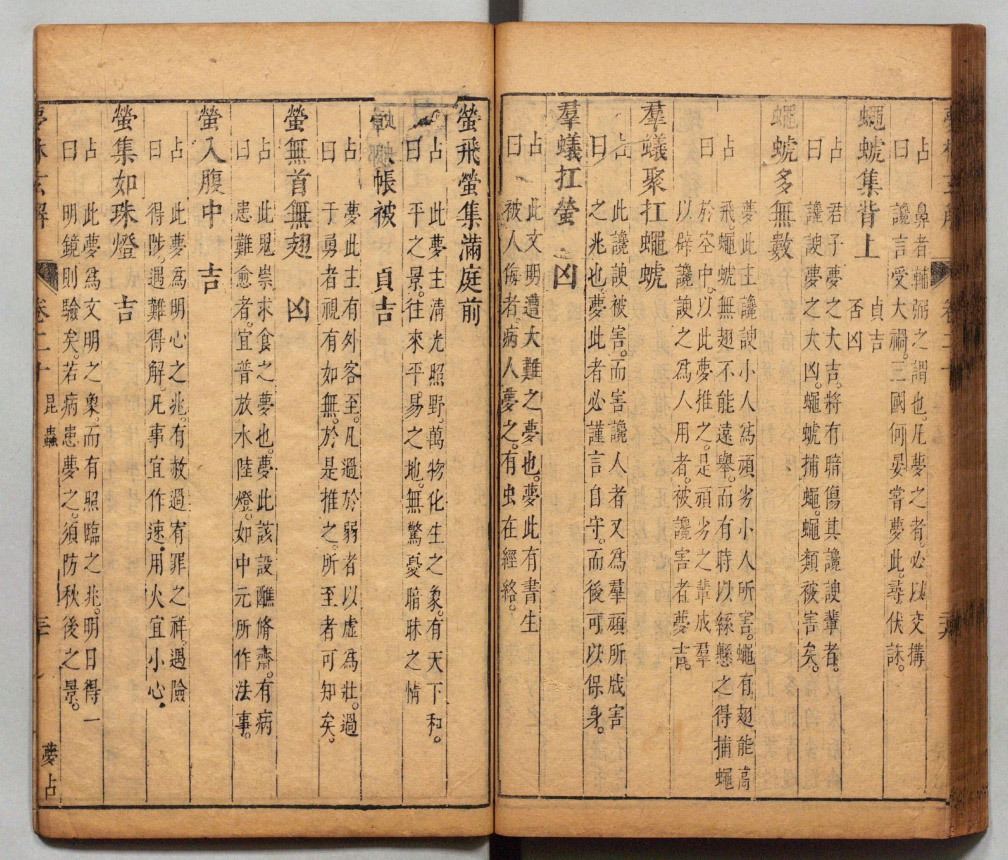 占鼻者輔弼之謂也。凡夢之者。必以交搆
曰讒言受大禍。三國何晏嘗夢此。尋伏誅。
蠅虎集背上
貞吉
否凶
占君子夢之大吉。將有暗傷其讒諛輩者。
曰讒諛夢之大凶。蠅虎捕蠅。蠅類被害矣。
蠅虎多無數
占夢此主讒諛小人為頑劣小人所害。蠅有翅能高
飛。蠅虎無翅不能遠舉。而有時以絲懸之得捕蠅
曰於空中。以此夢推之。是頑劣之輩成群
以辟讒諛之為人用者。被讒害者夢吉。
羣蟻聚扛蠅虎
占此讒諛被害。而害讒人者又為羣頑所戕害
曰之兆也。夢此者必謹言自守。而後可以保身。
羣蟻扛螢 凶
占此文明遭大難之夢也。夢此有書生
曰被人侮者。病人夢之。有虫在經絡。
螢飛螢集滿庭前
占此夢主清光照野。萬物化生之象。有天下和。
曰平之景。往來平易之地。無驚憂暗昧之情
帳被 貞吉
占夢此主有外客至。凡過於弱者以虛為壯。過
曰于勇者視有如無。於是推之所至者可知矣。
螢無首無翅 凶
占此鬼祟求食之夢也。夢此該設醮脩齋。有病
曰患難愈者。宜普放水陸燈。如中元所作法事。
螢入腹中 吉
占此夢為明心之兆。有赦過宥罪之祥。過險
曰得陟。遇難得解。凡事宜作速。用火宜小心。
螢集如珠燈 吉
占此夢為文明之象而有照臨之兆。明日得一
曰明鏡則驗矣。若病患夢之。須防秋後之景。
夢林玄解 卷二十 昆蟲 三十 夢占